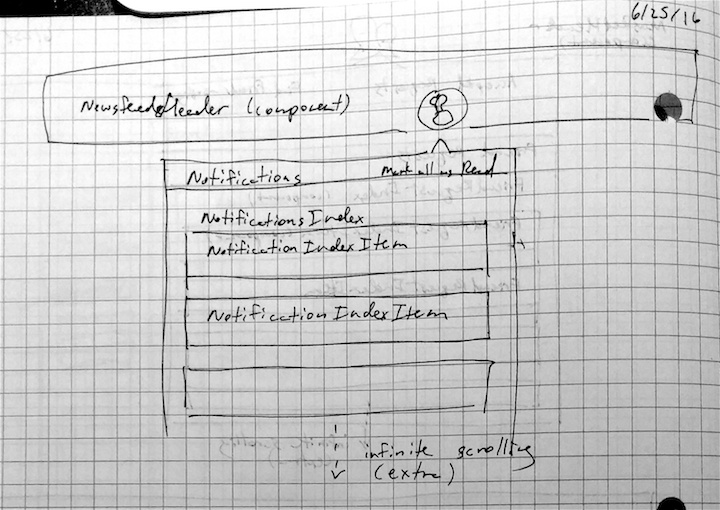 6/25/16
NewsfeedHeader (component)
Notifications Mark all as Read
NotificationsIndex
NotificationIndexItem
NotificationIndexItem
infinite scrolling
(extra)